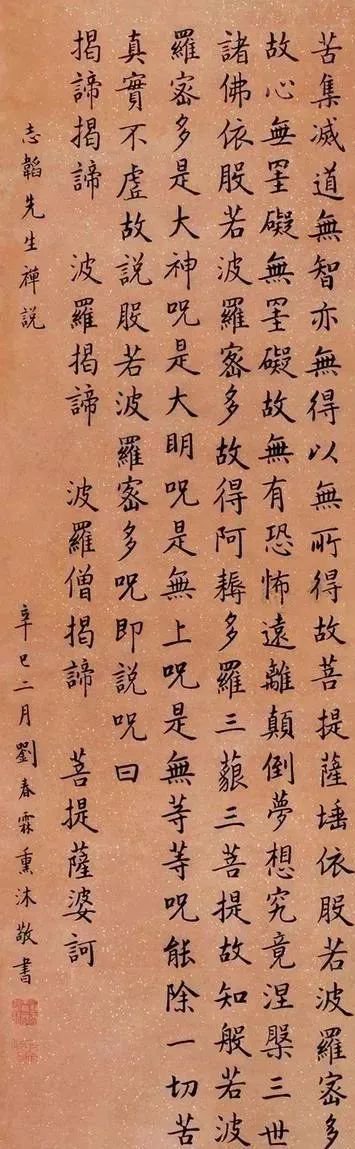 苦集滅道無智亦無得以無所得故菩提薩埵依般若波羅密多
故心無罣礙無罣礙故無有恐怖遠離顛倒夢想究竟涅槃三世
諸佛依般若波羅密多故得阿耨多羅三藐三菩提故知般若波
羅密多是大神呪是大明呪是無上呪是無等等呪能除一切苦
真實不虛故說般若波羅密多呪即說呪曰
揭諦揭諦 波羅揭諦 波羅僧揭諦 菩提薩婆訶
志韜先生禪説 辛巳二月劉春霖熏沐敬書